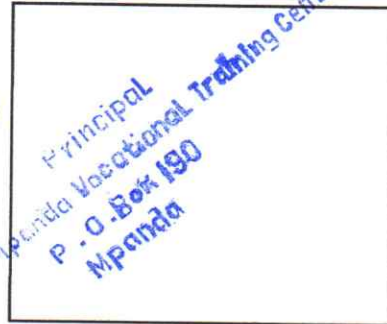 Principal
Mpanda Vocational Training Cent
P.O.Box 190
Mpanda